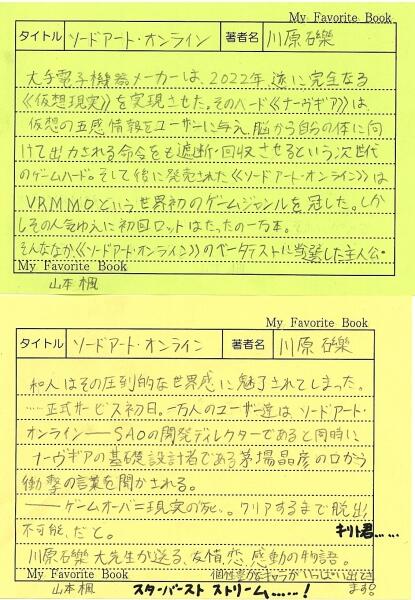 My Favorite Book
タイトル ソードアート・オンライン 著者名 川原礫樂
大手電子機器メーカーは、2022年、遂に完全なる
《仮想現実》を実現させた。そのハード《ナーヴギア》は、
仮想の五感情報をユーザーに与え、脳から自らの体に向
けて出力される命令をも遮断・回収させるという次世代
のゲームハード。そして後に発売された《ソードアート・オンライン》は
VRMMOという世界初のゲームジャンルを冠した。しか
しその人気ゆえに初回ロットはたったの一万本。
そんななか《ソードアート・オンライン》のベータテストに当選した主人公・
My Favorite Book
山本 楓
My Favorite Book
タイトル ソードアート・オンライン 著者名 川原 礫樂
和人はその圧倒的な世界感に魅了されてしまった。
……正式サービス初日。一万人のユーザー達は ソードアート・
オンライン――SAOの開発ディレクターであると同時に
ナーヴギアの基礎設計者である茅場晶彦の口から
衝撃の言葉を聞かされる。
――ゲームオーバー=現実の死。クリアするまで脱出
不可能、だと。 キリト君……
川原礫樂大先生が送る、友情、恋、感動の物語。
個性豊かなキャラがいっぱい出てきます。
My Favorite Book
山本 楓
スターバースト ストリーム……!